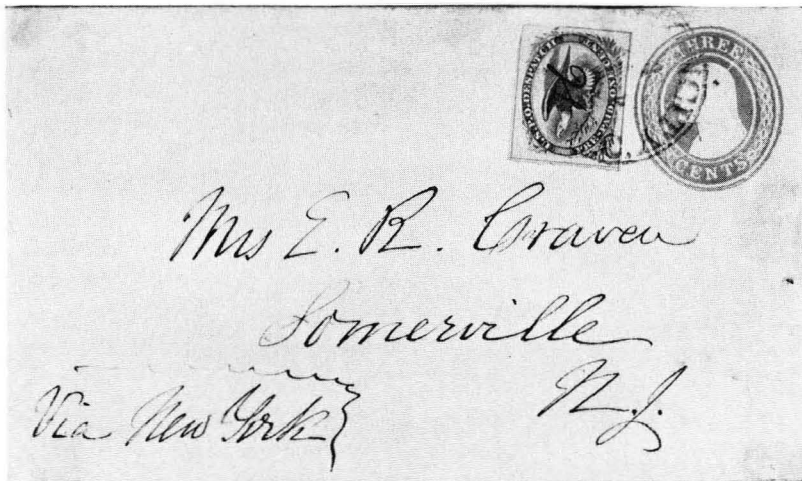 THREE
CENTS
Mrs E. R. Craven
Somerville
N. J.
Via New York